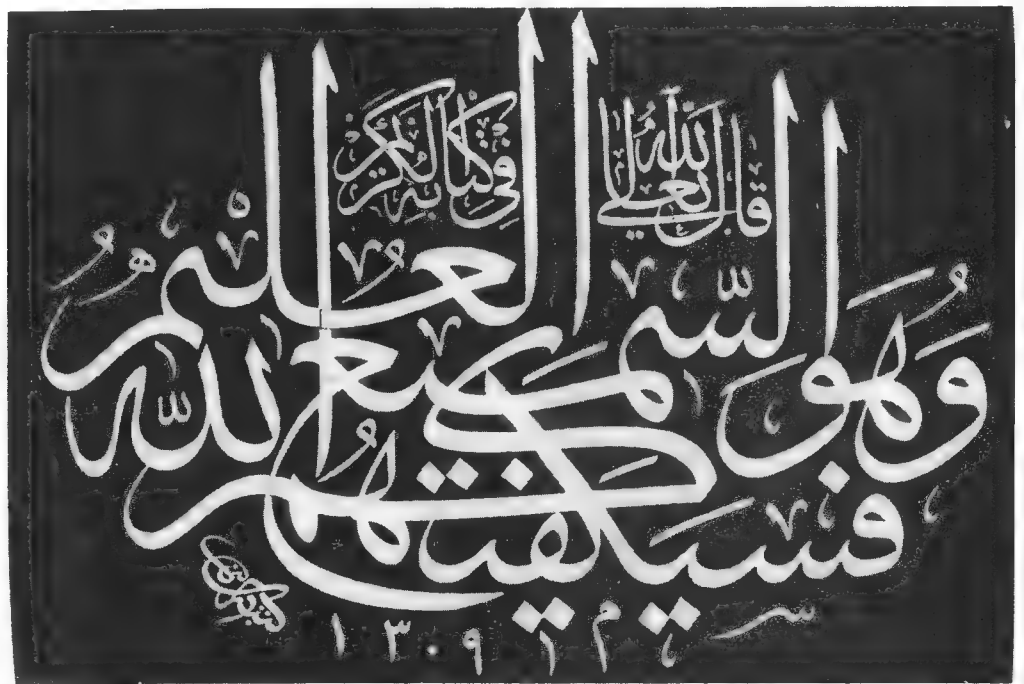 قال الله تعالى
في كتابه الكريم
فسيكفيكهم الله
وهو السميع العليم